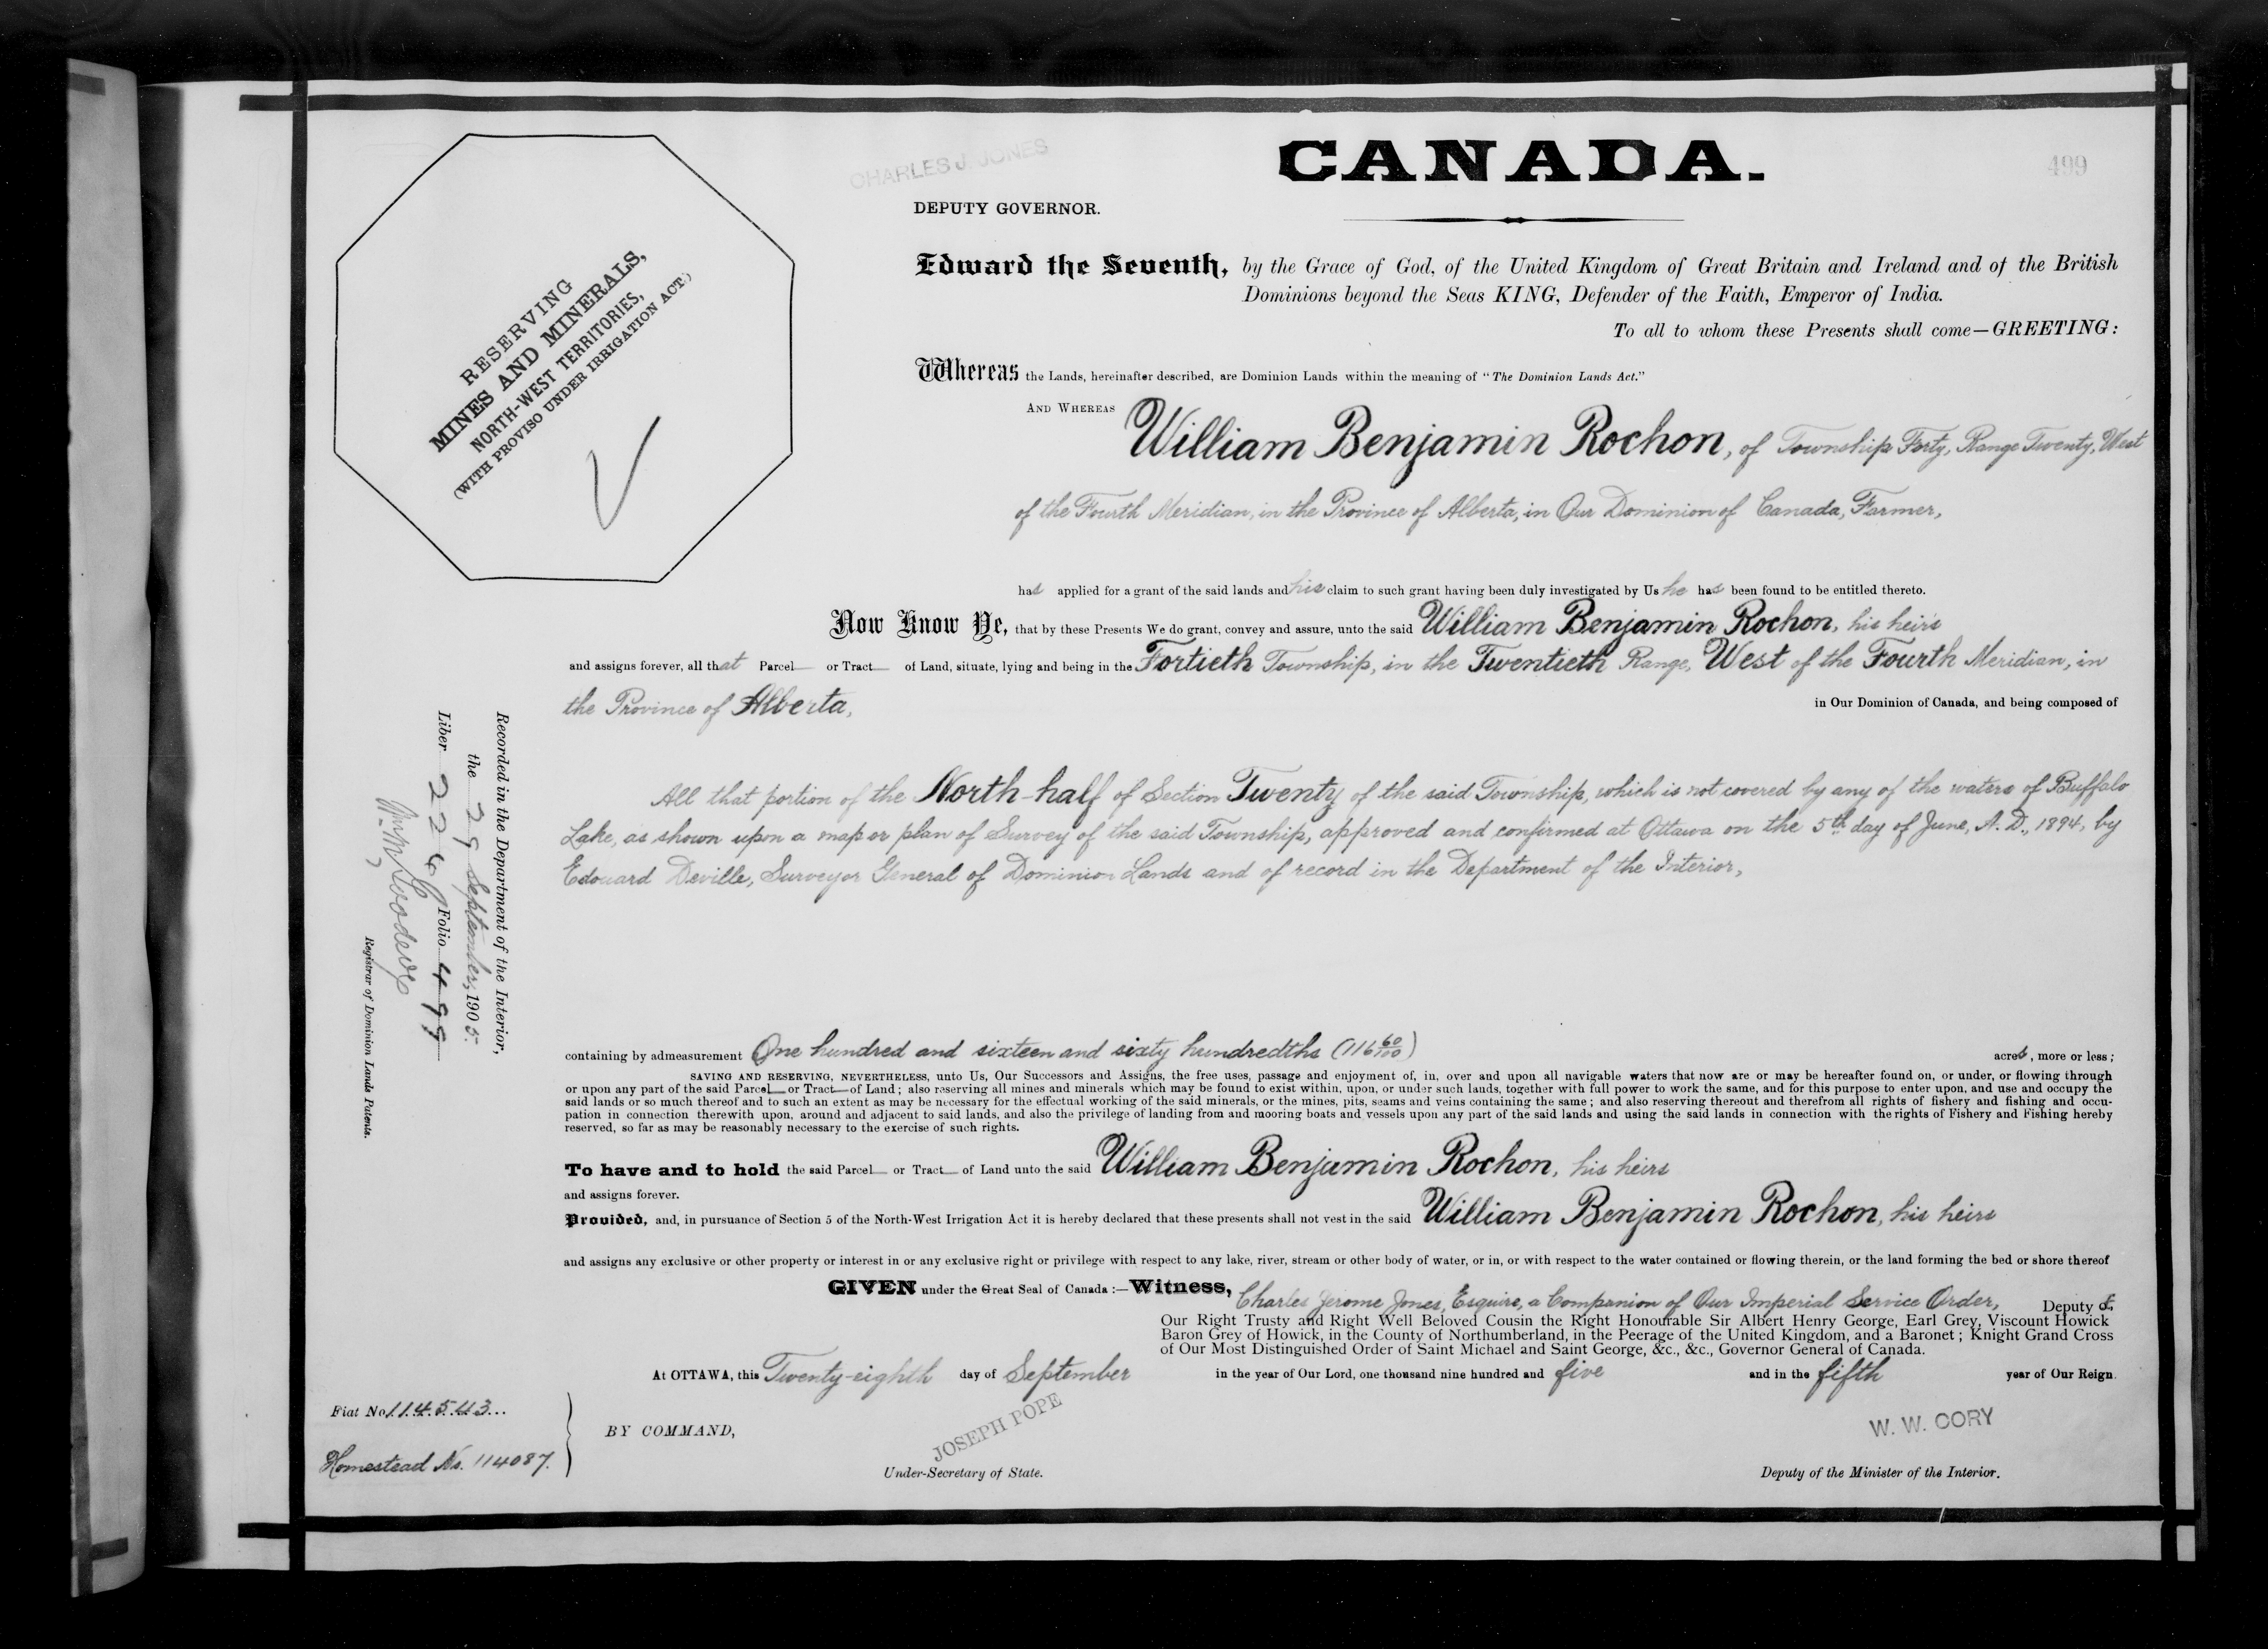 CHARLES J. JONES
CANADA.
499
DEPUTY GOVERNOR.
RESERVING
MINES AND MINERALS,
NORTH-WEST TERRITORIES,
(WITH PROVISO UNDER IRRIGATION ACT.)
Edward the Seventh, by the Grace of God, of the United Kingdom of Great Britain and Ireland and of the British
Dominions beyond the Seas KING, Defender of the Faith, Emperor of India.
To all to whom these Presents shall come—GREETING:
Whereas the Lands, hereinafter described, are Dominion Lands within the meaning of "The Dominion Lands Act."
AND WHEREAS William Benjamin Rochon, of Township Forty, Range Twenty, West
of the Fourth Meridian, in the Province of Alberta, in Our Dominion of Canada, Farmer,
has applied for a grant of the said lands and his claim to such grant having been duly investigated by Us he has been found to be entitled thereto.
Now Know Ye, that by these Presents We do grant, convey and assure, unto the said William Benjamin Rochon, his heirs
and assigns forever, all that Parcel or Tract of Land, situate, lying and being in the Fortieth Township, in the Twentieth Range, West of the Fourth Meridian, in
the Province of Alberta, in Our Dominion of Canada, and being composed of
All that portion of the North-half of Section Twenty of the said Township, which is not covered by any of the waters of Buffalo
Lake, as shown upon a map or plan of Survey of the said Township, approved and confirmed at Ottawa on the 5th day of June, A. D., 1894, by
Edouard Deville, Surveyor General of Dominion Lands and of record in the Department of the Interior,
Recorded in the Department of the Interior,
the 29 September, 1905.
Liber 226 Folio 499
Registrar of Dominion Lands Patents.
containing by admeasurement One hundred and sixteen and sixty hundredths (116 60/100) acres, more or less;
SAVING AND RESERVING, NEVERTHELESS, unto Us, Our Successors and Assigns, the free uses, passage and enjoyment of, in, over and upon all navigable waters that now are or may be hereafter found on, or under, or flowing through
or upon any part of the said Parcel or Tract of Land; also reserving all mines and minerals which may be found to exist within, upon, or under such lands, together with full power to work the same, and for this purpose to enter upon, and use and occupy the
said lands or so much thereof and to such an extent as may be necessary for the effectual working of the said minerals, or the mines, pits, seams and veins containing the same; and also reserving thereout and therefrom all rights of fishery and fishing and occu-
pation in connection therewith upon, around and adjacent to said lands, and also the privilege of landing from and mooring boats and vessels upon any part of the said lands and using the said lands in connection with the rights of Fishery and Fishing hereby
reserved, so far as may be reasonably necessary to the exercise of such rights.
To have and to hold the said Parcel or Tract of Land unto the said William Benjamin Rochon, his heirs
and assigns forever.
Provided, and, in pursuance of Section 5 of the North-West Irrigation Act it is hereby declared that these presents shall not vest in the said William Benjamin Rochon, his heirs
and assigns any exclusive or other property or interest in or any exclusive right or privilege with respect to any lake, river, stream or other body of water, or in, or with respect to the water contained or flowing therein, or the land forming the bed or shore thereof
GIVEN under the Great Seal of Canada:—Witness, Charles Jerome Jones, Esquire, a Companion of Our Imperial Service Order, Deputy of,
Our Right Trusty and Right Well Beloved Cousin the Right Honourable Sir Albert Henry George, Earl Grey, Viscount Howick
Baron Grey of Howick, in the County of Northumberland, in the Peerage of the United Kingdom, and a Baronet; Knight Grand Cross
of Our Most Distinguished Order of Saint Michael and Saint George, &c., &c., Governor General of Canada.
At OTTAWA, this Twenty-eighth day of September in the year of Our Lord, one thousand nine hundred and five and in the fifth year of Our Reign.
Fiat No. 114543...
Homestead No. 114087.
BY COMMAND,
JOSEPH POPE
Under-Secretary of State.
W. W. CORY
Deputy of the Minister of the Interior.